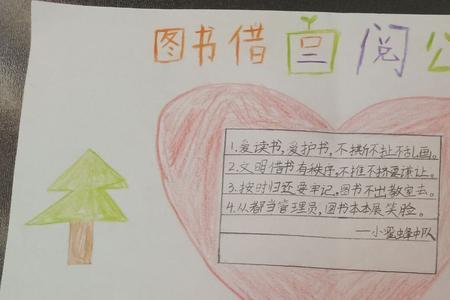 图书借阅公
1.爱读书,爱护书,不撕不扯不乱画。
2.文明借书有秩序,不推不挤要谦让。
3.按时归还要牢记,图书不出教室去。
4.人人都当管理员,图书本本展笑脸。
——小蜜蜂中队